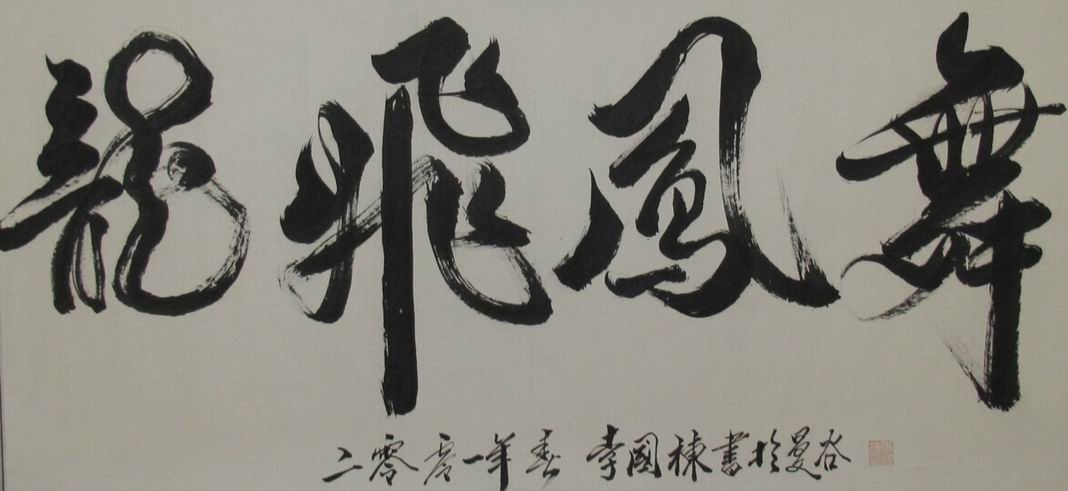 龍飛鳳舞
二零零一年春 李國棟書於曼谷